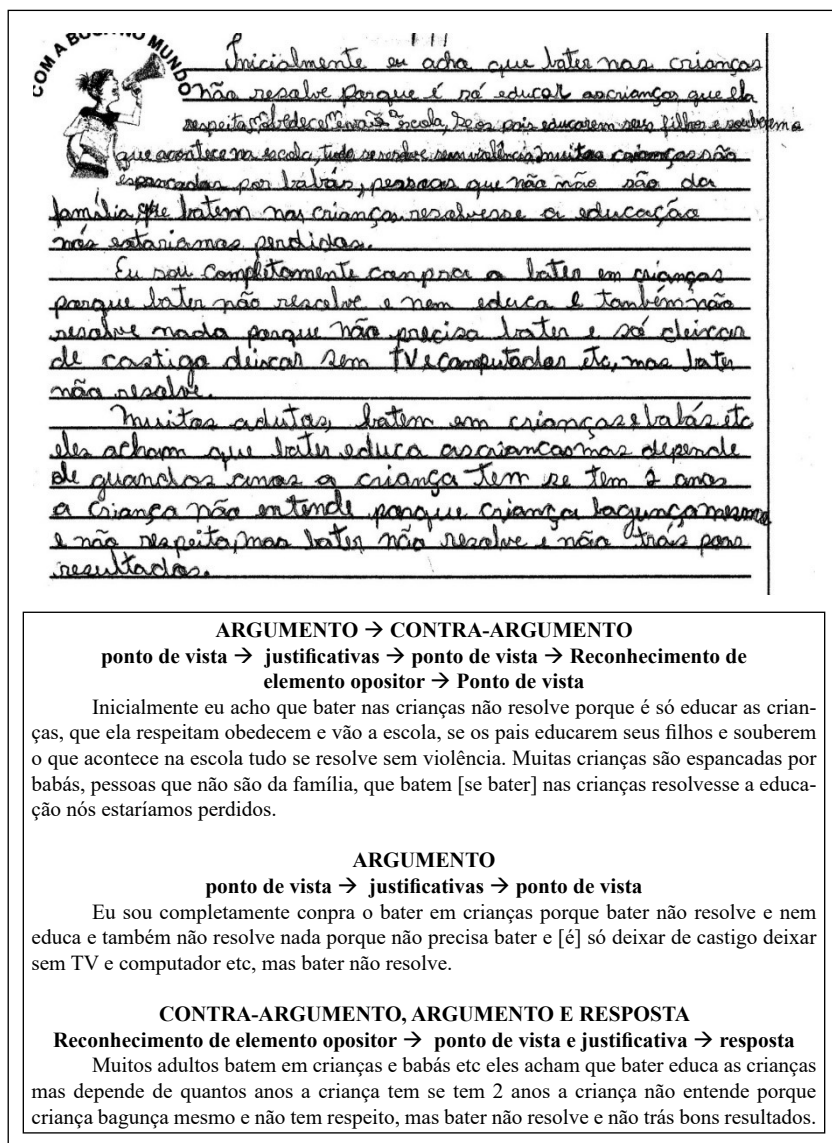 COM A BOCA NO MUNDO
Inicialmente eu acho que bater nas crianças
não resolve porque é só educar as crianças que ela
respeita, obedece e vai a escola, se os pais educarem seus filhos e souberem o
que acontece na escola, tudo se resolve sem violência, muitas crianças são
espancadas por babás, pessoas que não não são da
família, que batem nas crianças resolvesse a educação
nós estariamos perdidos.
Eu sou completamente conpra o bater em crianças
porque bater não resolve e nem educa e também não
resolve nada porque não precisa bater e só deixar
de castigo deixar sem TV e computador etc, mas bater
não resolve.
Muitos adutos, batem em crianças e babás etc
eles acham que bater educa as criancas mas depende
de quandos anos a criança tem se tem 2 anos
a criança não entende porque criança bagunça mesmo
e não respeita, mas bater não resolve e não trás bons
resultados.
ARGUMENTO → CONTRA-ARGUMENTO
ponto de vista → justificativas → ponto de vista → Reconhecimento de
elemento opositor → Ponto de vista
Inicialmente eu acho que bater nas crianças não resolve porque é só educar as crian-
ças, que ela respeitam obedecem e vão a escola, se os pais educarem seus filhos e souberem
o que acontece na escola tudo se resolve sem violência. Muitas crianças são espancadas por
babás, pessoas que não são da família, que batem [se bater] nas crianças resolvesse a educa-
ção nós estaríamos perdidos.
ARGUMENTO
ponto de vista → justificativas → ponto de vista
Eu sou completamente conpra o bater em crianças porque bater não resolve e nem
educa e também não resolve nada porque não precisa bater e [é] só deixar de castigo deixar
sem TV e computador etc, mas bater não resolve.
CONTRA-ARGUMENTO, ARGUMENTO E RESPOSTA
Reconhecimento de elemento opositor → ponto de vista e justificativa → resposta
Muitos adultos batem em crianças e babás etc eles acham que bater educa as crianças
mas depende de quantos anos a criança tem se tem 2 anos a criança não entende porque
criança bagunça mesmo e não tem respeito, mas bater não resolve e não trás bons resultados.